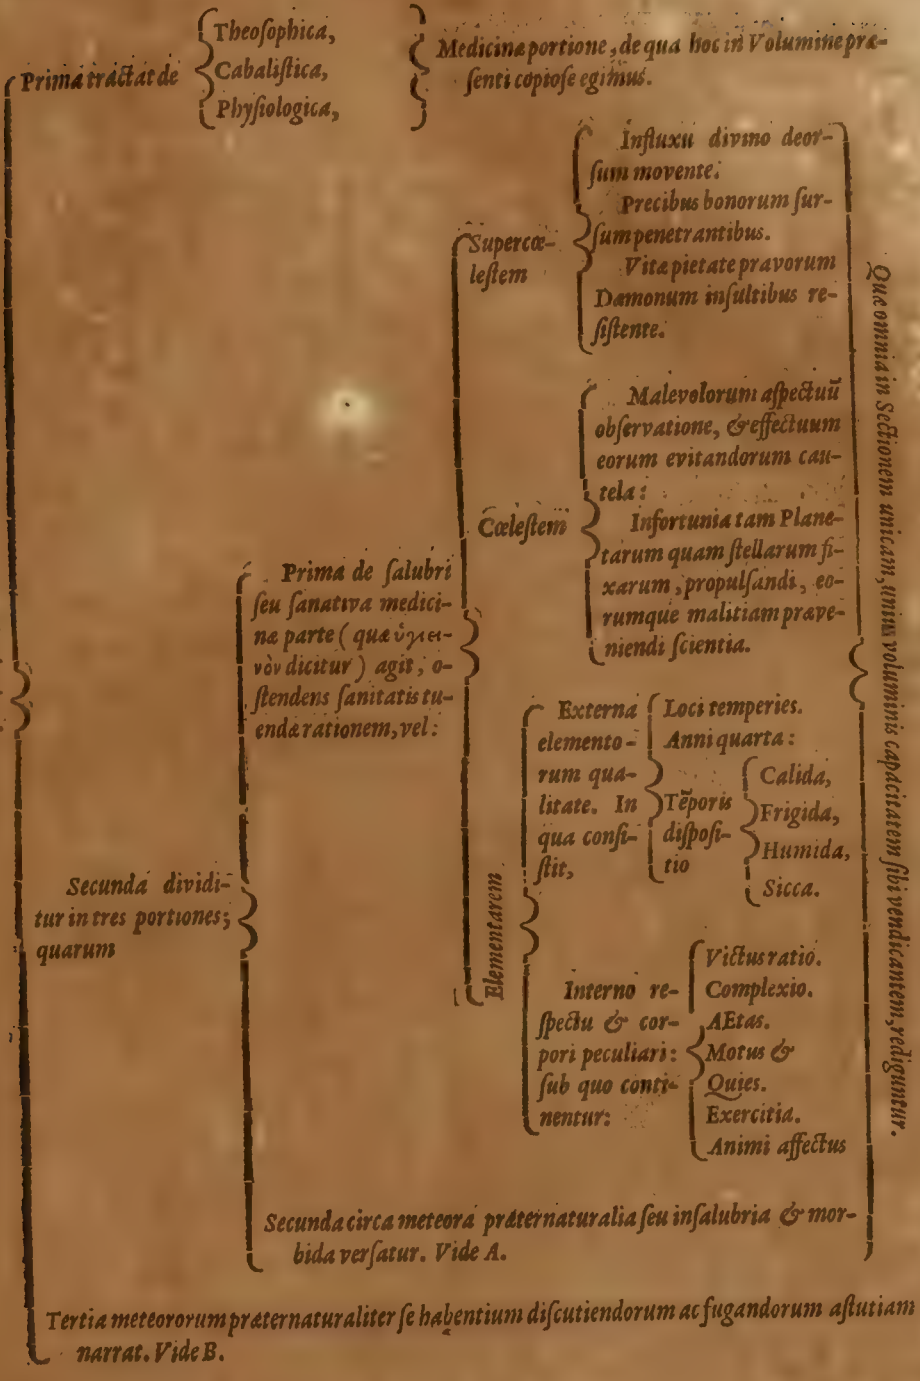 Prima tractat de
Theoſophica,
Cabaliſtica,
Phyſiologica,
Medicinæ portione, de qua hoc in Volumine præ-
ſenti copioſe egimus.
Secunda dividi-
tur in tres portiones;
quarum
Prima de ſalubri
ſeu ſanativa medici-
næ parte (quæ ὑγιει-
νὸν dicitur) agit, o-
ſtendens ſanitatis tu-
endæ rationem, vel:
Supercœ-
leſtem
Influxu divino deor-
ſum movente.
Precibus bonorum ſur-
ſum penetrantibus.
Vitæ pietate pravorum
Dæmonum inſultibus re-
ſiſtente.
Cœleſtem
Malevolorum aſpectuũ
obſervatione, & effectuum
eorum evitandorum cau-
tela:
Infortunia tam Plane-
tarum quam ſtellarum fi-
xarum, propulſandi, eo-
rumque malitiam præve-
niendi ſcientia.
Elementarem
Externa
elemento-
rum qua-
litate. In
qua conſi-
ſtit,
Loci temperies.
Anni quarta:
Tẽporis
diſpoſi-
tio
Calida,
Frigida,
Humida,
Sicca.
Interno re-
ſpectu & cor-
pori peculiari:
ſub quo conti-
nentur:
Victus ratio.
Complexio.
AEtas.
Motus &
Quies.
Exercitia.
Animi affectus
Quæ omnia in Sectionem unicam, unius voluminis capacitatem ſibi vendicantem, rediguntur.
Secunda circa meteora præternaturalia ſeu inſalubria & mor-
bida verſatur. Vide A.
Tertia meteororum præternaturaliter ſe habentium diſcutiendorum ac fugandorum aſtutiam
narrat. Vide B.